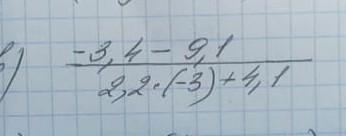 в) -3,4 - 9,1
2,2 · (-3) + 4,1